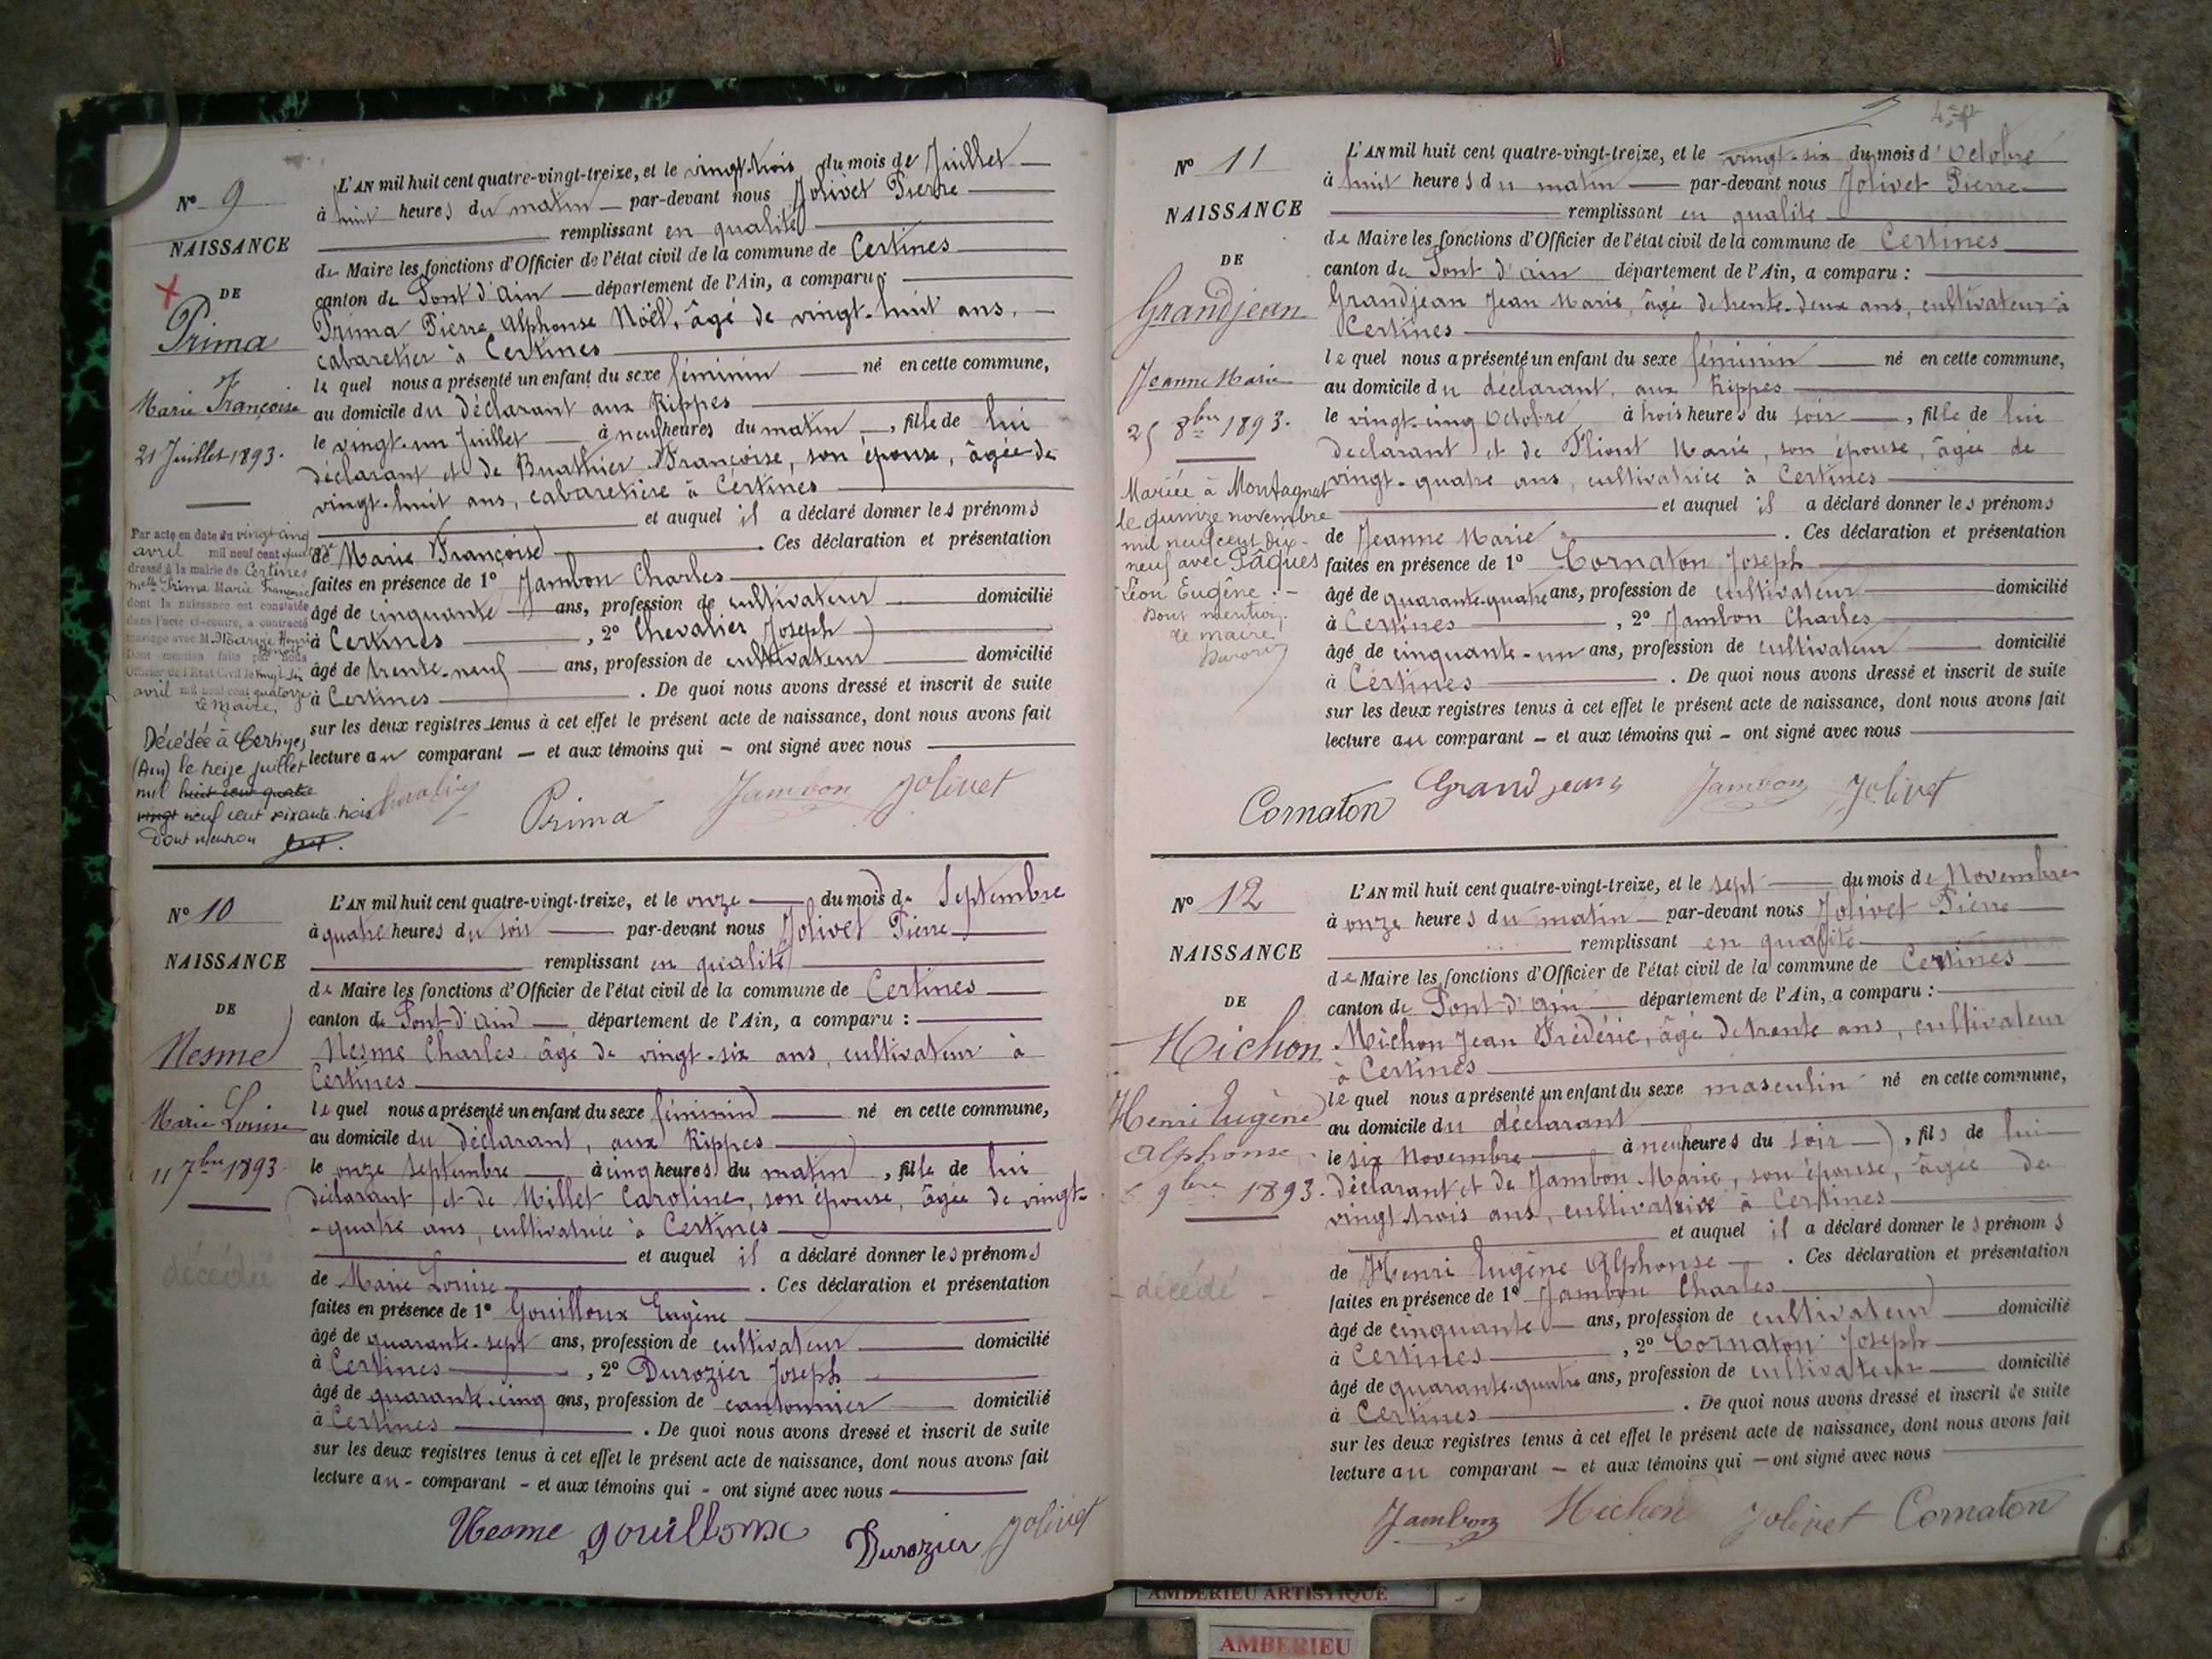 N° 9
NAISSANCE
DE
Prima
Marie Françoise
21 Juillet 1893.
Par acte en date du vingt cinq
avril mil neuf cent
dressé à la mairie de Certines
Melle Prima Marie Françoise
dont la naissance est constatée
dans l'acte ci-contre, a contracté
mariage avec M. Henri
Dont mention faite par nous
Officier de l'Etat Civil le vingt six
avril mil neuf cent quatorze
Le Maire,
Décédée à Certines
(Ain) le treize juillet
mil huit cent quatre
vingt neuf cent soixante trois
Dont mention
L'AN mil huit cent quatre-vingt-treize, et le vingt-trois du mois de Juillet
à huit heures du matin par-devant nous Jolivet Pierre
remplissant en qualité
de Maire les fonctions d'Officier de l'état civil de la commune de Certines
canton de Pont d'Ain département de l'Ain, a comparu :
Prima Pierre Alphonse Noël, âgé de vingt-huit ans,
cabaretier à Certines
lequel nous a présenté un enfant du sexe féminin né en cette commune,
au domicile du déclarant aux Rippes
le vingt-un Juillet à neuf heures du matin, fille de lui
déclarant et de Buathier Françoise, son épouse, âgée de
vingt-huit ans, cabaretière à Certines
et auquel il a déclaré donner les prénoms
de Marie Françoise. Ces déclaration et présentation
faites en présence de 1° Jambon Charles
âgé de cinquante ans, profession de cultivateur domicilié
à Certines, 2° Chevalier Joseph
âgé de trente-neuf ans, profession de cultivateur domicilié
à Certines. De quoi nous avons dressé et inscrit de suite
sur les deux registres tenus à cet effet le présent acte de naissance, dont nous avons fait
lecture au comparant - et aux témoins qui - ont signé avec nous
Chevalier Prima Jambon Jolivet
N° 10
NAISSANCE
DE
Nesme
Marie Louise
11 7bre 1893.
décédée
L'AN mil huit cent quatre-vingt-treize, et le onze du mois de Septembre
à quatre heures du soir par-devant nous Jolivet Pierre
remplissant en qualité
de Maire les fonctions d'Officier de l'état civil de la commune de Certines
canton de Pont d'Ain, département de l'Ain, a comparu :
Nesme Charles âgé de vingt-six ans, cultivateur à
Certines
lequel nous a présenté un enfant du sexe féminin né en cette commune,
au domicile du déclarant, aux Rippes
le onze Septembre à cinq heures du matin, fille de lui
déclarant et de Millet Caroline, son épouse, âgée de vingt-
-quatre ans, cultivatrice à Certines
et auquel il a déclaré donner les prénoms
de Marie Louise. Ces déclaration et présentation
faites en présence de 1° Gouilloux Eugène
âgé de quarante-sept ans, profession de cultivateur domicilié
à Certines, 2° Durozier Joseph
âgé de quarante-cinq ans, profession de cantonnier domicilié
à Certines. De quoi nous avons dressé et inscrit de suite
sur les deux registres tenus à cet effet le présent acte de naissance, dont nous avons fait
lecture au - comparant - et aux témoins qui - ont signé avec nous
Nesme gouilloux Durozier Jolivet
N° 11
NAISSANCE
DE
Grandjean
Jeanne Marie
25 8bre 1893.
Mariée à Montagnat
le quinze novembre
mil neuf cent dix-
neuf avec Pâques
Léon Eugène. -
Dont mention
Le maire
L'AN mil huit cent quatre-vingt-treize, et le vingt-six du mois d'Octobre
à huit heures du matin par-devant nous Jolivet Pierre
remplissant en qualité
de Maire les fonctions d'Officier de l'état civil de la commune de Certines
canton de Pont d'Ain département de l'Ain, a comparu :
Grandjean Jean Marie, âgé de trente-deux ans, cultivateur à
Certines
lequel nous a présenté un enfant du sexe féminin né en cette commune,
au domicile du déclarant, aux Rippes
le vingt-cinq Octobre à trois heures du soir, fille de lui
déclarant et de Marie, son épouse, âgée de
vingt-quatre ans, cultivatrice à Certines
et auquel il a déclaré donner les prénoms
de Jeanne Marie. Ces déclaration et présentation
faites en présence de 1° Cornaton Joseph
âgé de quarante-quatre ans, profession de cultivateur domicilié
à Certines, 2° Jambon Charles
âgé de cinquante-un ans, profession de cultivateur domicilié
à Certines. De quoi nous avons dressé et inscrit de suite
sur les deux registres tenus à cet effet le présent acte de naissance, dont nous avons fait
lecture au comparant - et aux témoins qui - ont signé avec nous
Cornaton Grandjean Jambon Jolivet
N° 12
NAISSANCE
DE
Michon
Henri Eugène
Alphonse
6 9bre 1893.
décédé
L'AN mil huit cent quatre-vingt-treize, et le sept du mois de Novembre
à onze heures du matin par-devant nous Jolivet Pierre
remplissant en qualité
de Maire les fonctions d'Officier de l'état civil de la commune de Certines
canton de Pont d'Ain département de l'Ain, a comparu :
Michon Jean Frédéric, âgé de trente ans, cultivateur
à Certines
lequel nous a présenté un enfant du sexe masculin né en cette commune,
au domicile du déclarant
le six Novembre à neuf heures du soir, fils de lui
déclarant et de Jambon Marie, son épouse, âgée de
vingt-trois ans, cultivatrice à Certines
et auquel il a déclaré donner les prénoms
de Henri Eugène Alphonse. Ces déclaration et présentation
faites en présence de 1° Jambon Charles
âgé de cinquante ans, profession de cultivateur domicilié
à Certines, 2° Cornaton Joseph
âgé de quarante-quatre ans, profession de cultivateur domicilié
à Certines. De quoi nous avons dressé et inscrit de suite
sur les deux registres tenus à cet effet le présent acte de naissance, dont nous avons fait
lecture au comparant - et aux témoins qui - ont signé avec nous
Jambon Michon Jolivet Cornaton
AMBERIEU ARTISTIQUE
AMBERIEU